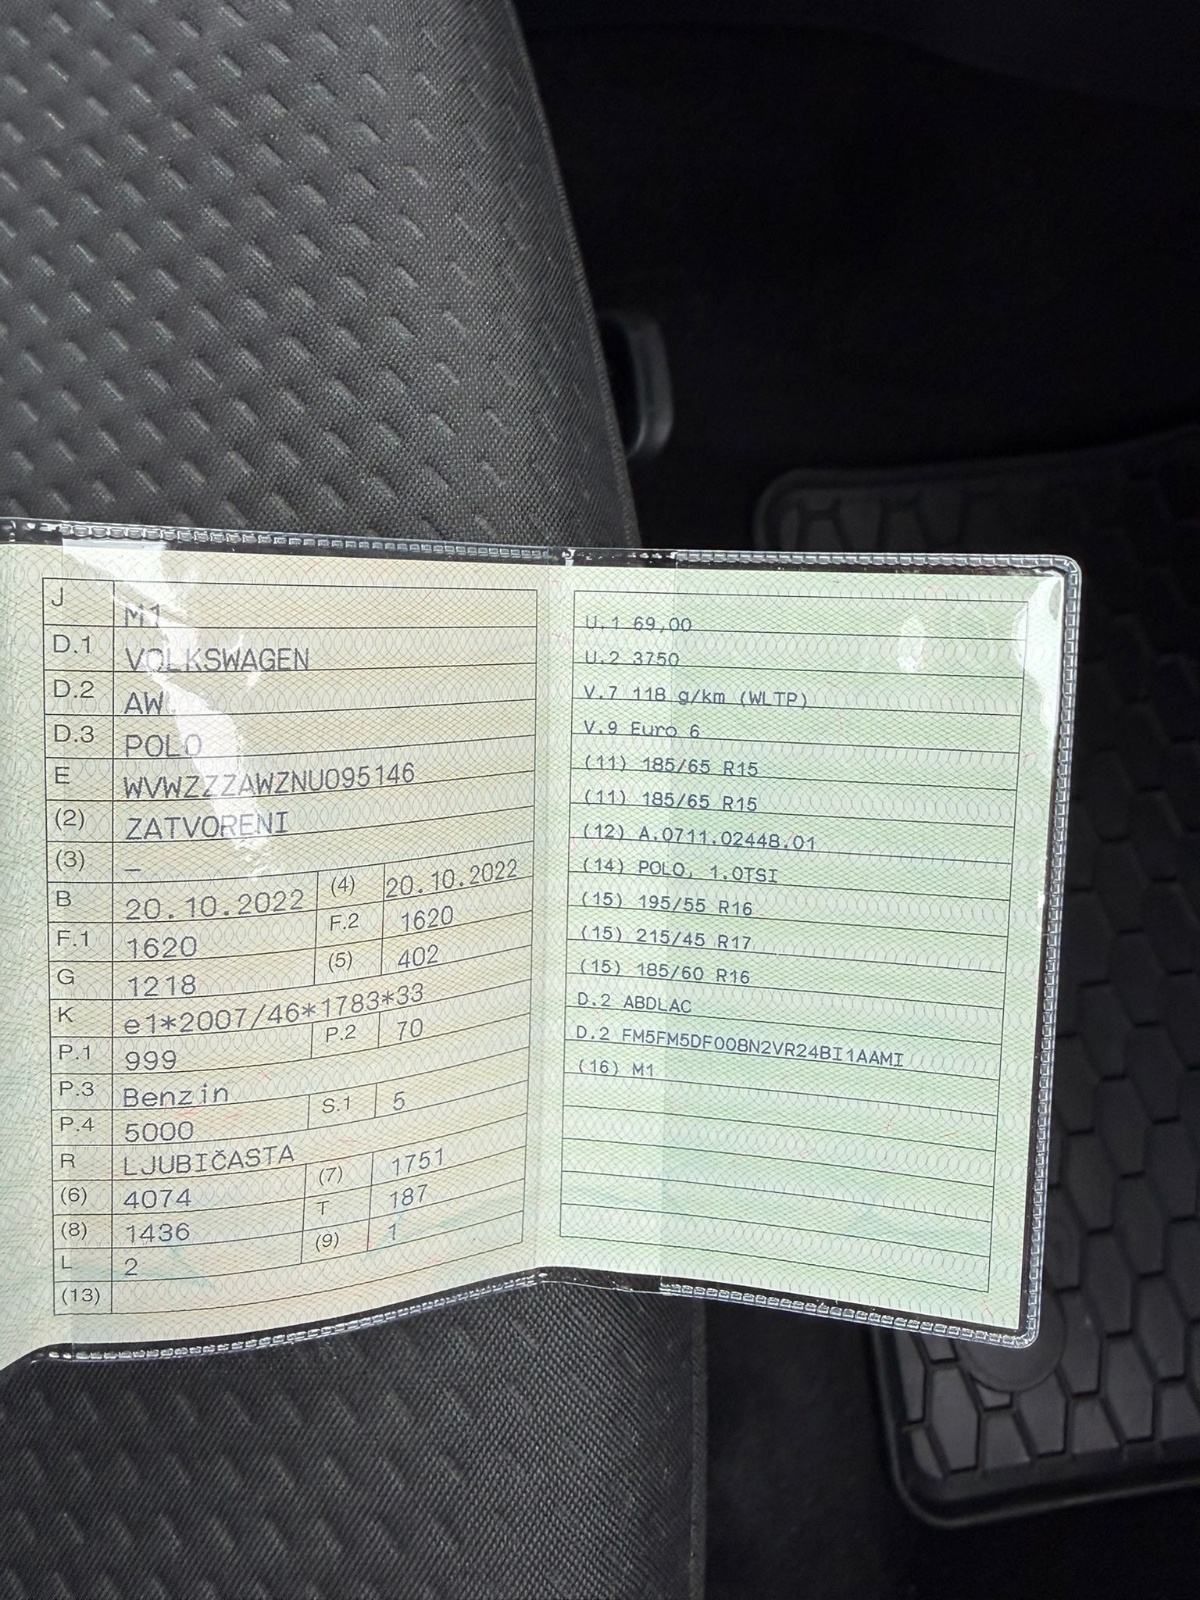 J M1
D.1 VOLKSWAGEN
D.2 AW
D.3 POLO
E WVWZZZAWZNU095146
(2) ZATVORENI
(3) –
B 20.10.2022 (4) 20.10.2022
F.1 1620 F.2 1620
G 1218 (5) 402
K e1*2007/46*1783*33
P.1 999 P.2 70
P.3 Benzin
P.4 5000 S.1 5
R LJUBIČASTA
(6) 4074 (7) 1751
(8) 1436 T 187
L 2 (9) 1
(13)
U.1 69,00
U.2 3750
V.7 118 g/km (WLTP)
V.9 Euro 6
(11) 185/65 R15
(11) 185/65 R15
(12) A.0711.02448.01
(14) POLO, 1.0TSI
(15) 195/55 R16
(15) 215/45 R17
(15) 185/60 R16
D.2 ABDLAC
D.2 FM5FM5DF008N2VR24BI1AAMI
(16) M1